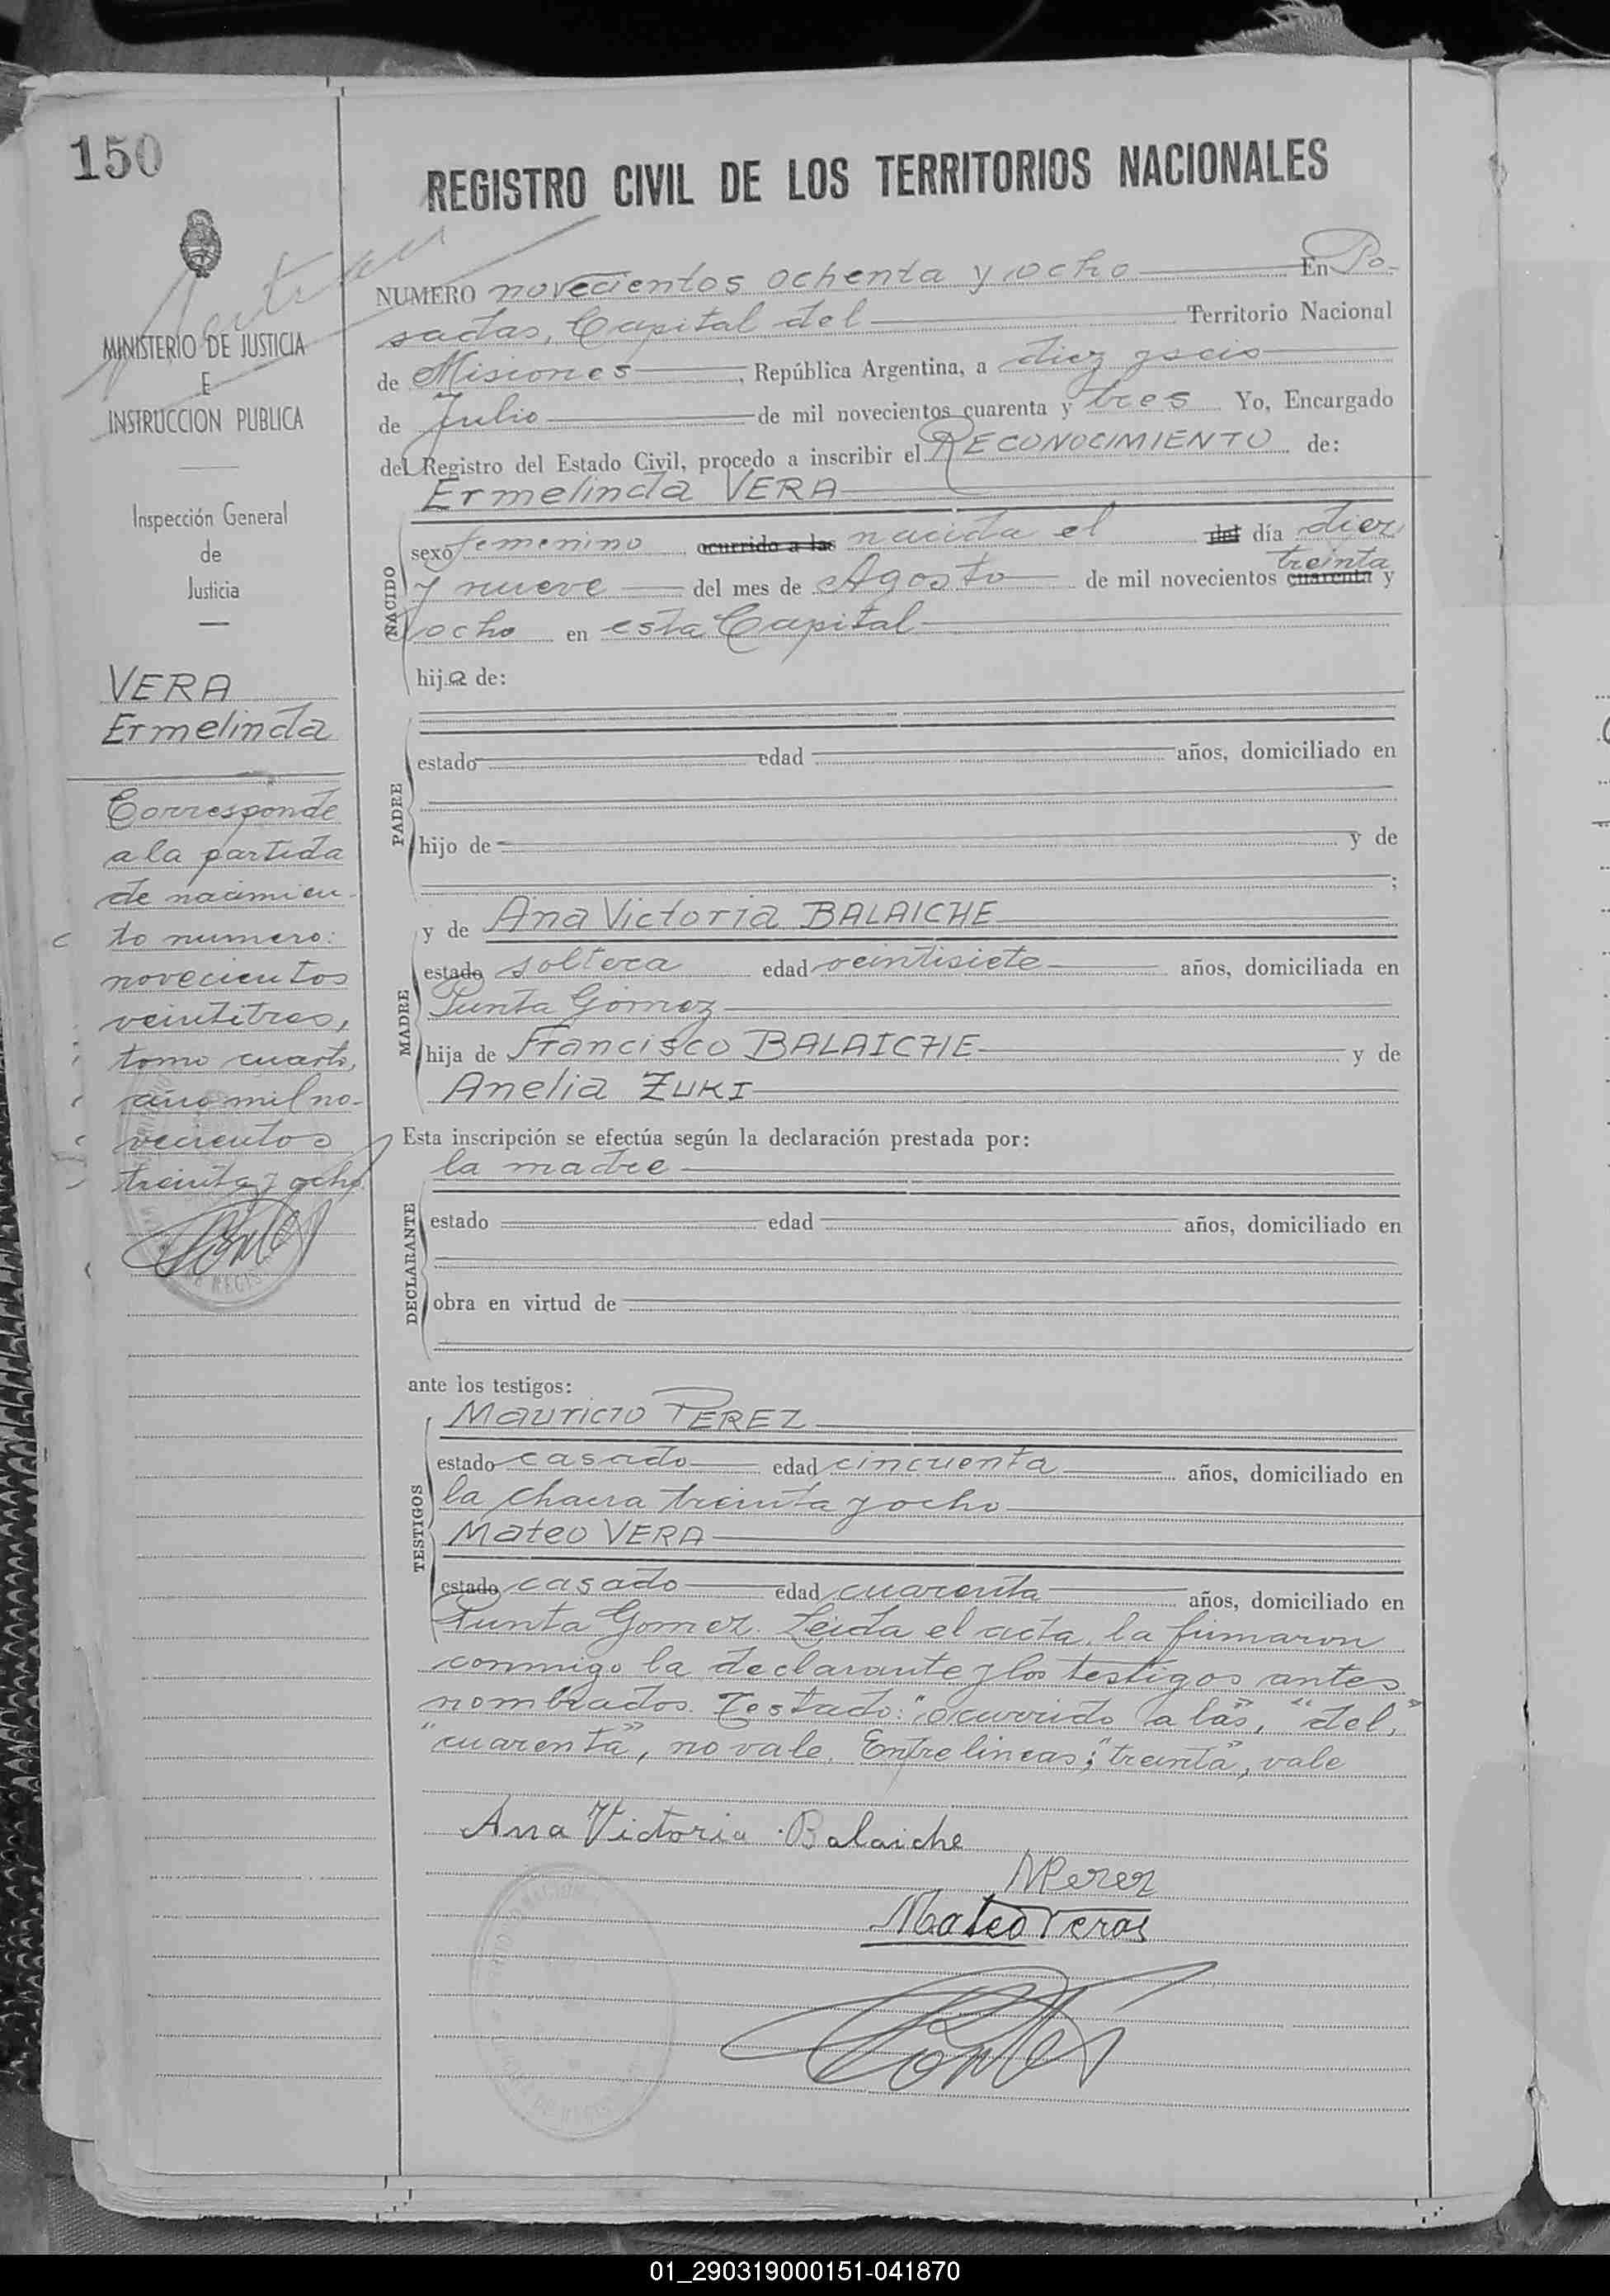 150
REGISTRO CIVIL DE LOS TERRITORIOS NACIONALES
MINISTERIO DE JUSTICIA
E
INSTRUCCION PUBLICA
Inspección General
de
Justicia
VERA
Ermelinda
Corresponde
a la partida
de nacimien-
to numero:
novecientos
veintitres,
tomo cuarto,
año mil no-
vecientos
treinta y ocho
NUMERO novecientos ochenta y ocho En Po-
sadas, Capital del Territorio Nacional
de Misiones, República Argentina, a diez y seis
de Julio de mil novecientos cuarenta y tres Yo, Encargado
del Registro del Estado Civil, procedo a inscribir el RECONOCIMIENTO de:
Ermelinda VERA
NACIDO
sexo femenino ocurrido a las nacida el del día diez
treinta
y nueve del mes de Agosto de mil novecientos cuarenta y
ocho en esta Capital
hija de:
PADRE
estado edad años, domiciliado en
hijo de y de
;
y de Ana Victoria BALAICHE
MADRE
estado soltera edad veintisiete años, domiciliada en
Punta Gomez
hija de Francisco BALAICHE y de
Anelia ZUKI
Esta inscripción se efectúa según la declaración prestada por:
la madre
DECLARANTE
estado edad años, domiciliado en
obra en virtud de
ante los testigos:
Mauricio PEREZ
TESTIGOS
estado casado edad cincuenta años, domiciliado en
la chacra treinta y ocho
Mateo VERA
estado casado edad cuarenta años, domiciliado en
Punta Gomez. Leida el acta, la firmaron
conmigo la declarante y los testigos antes
nombrados. Testado: "ocurrido a las", "del",
"cuarenta", no vale. Entre lineas: "treinta", vale
Ana Victoria Balaiche
MPerez
Mateo Veras
01_290319000151-041870